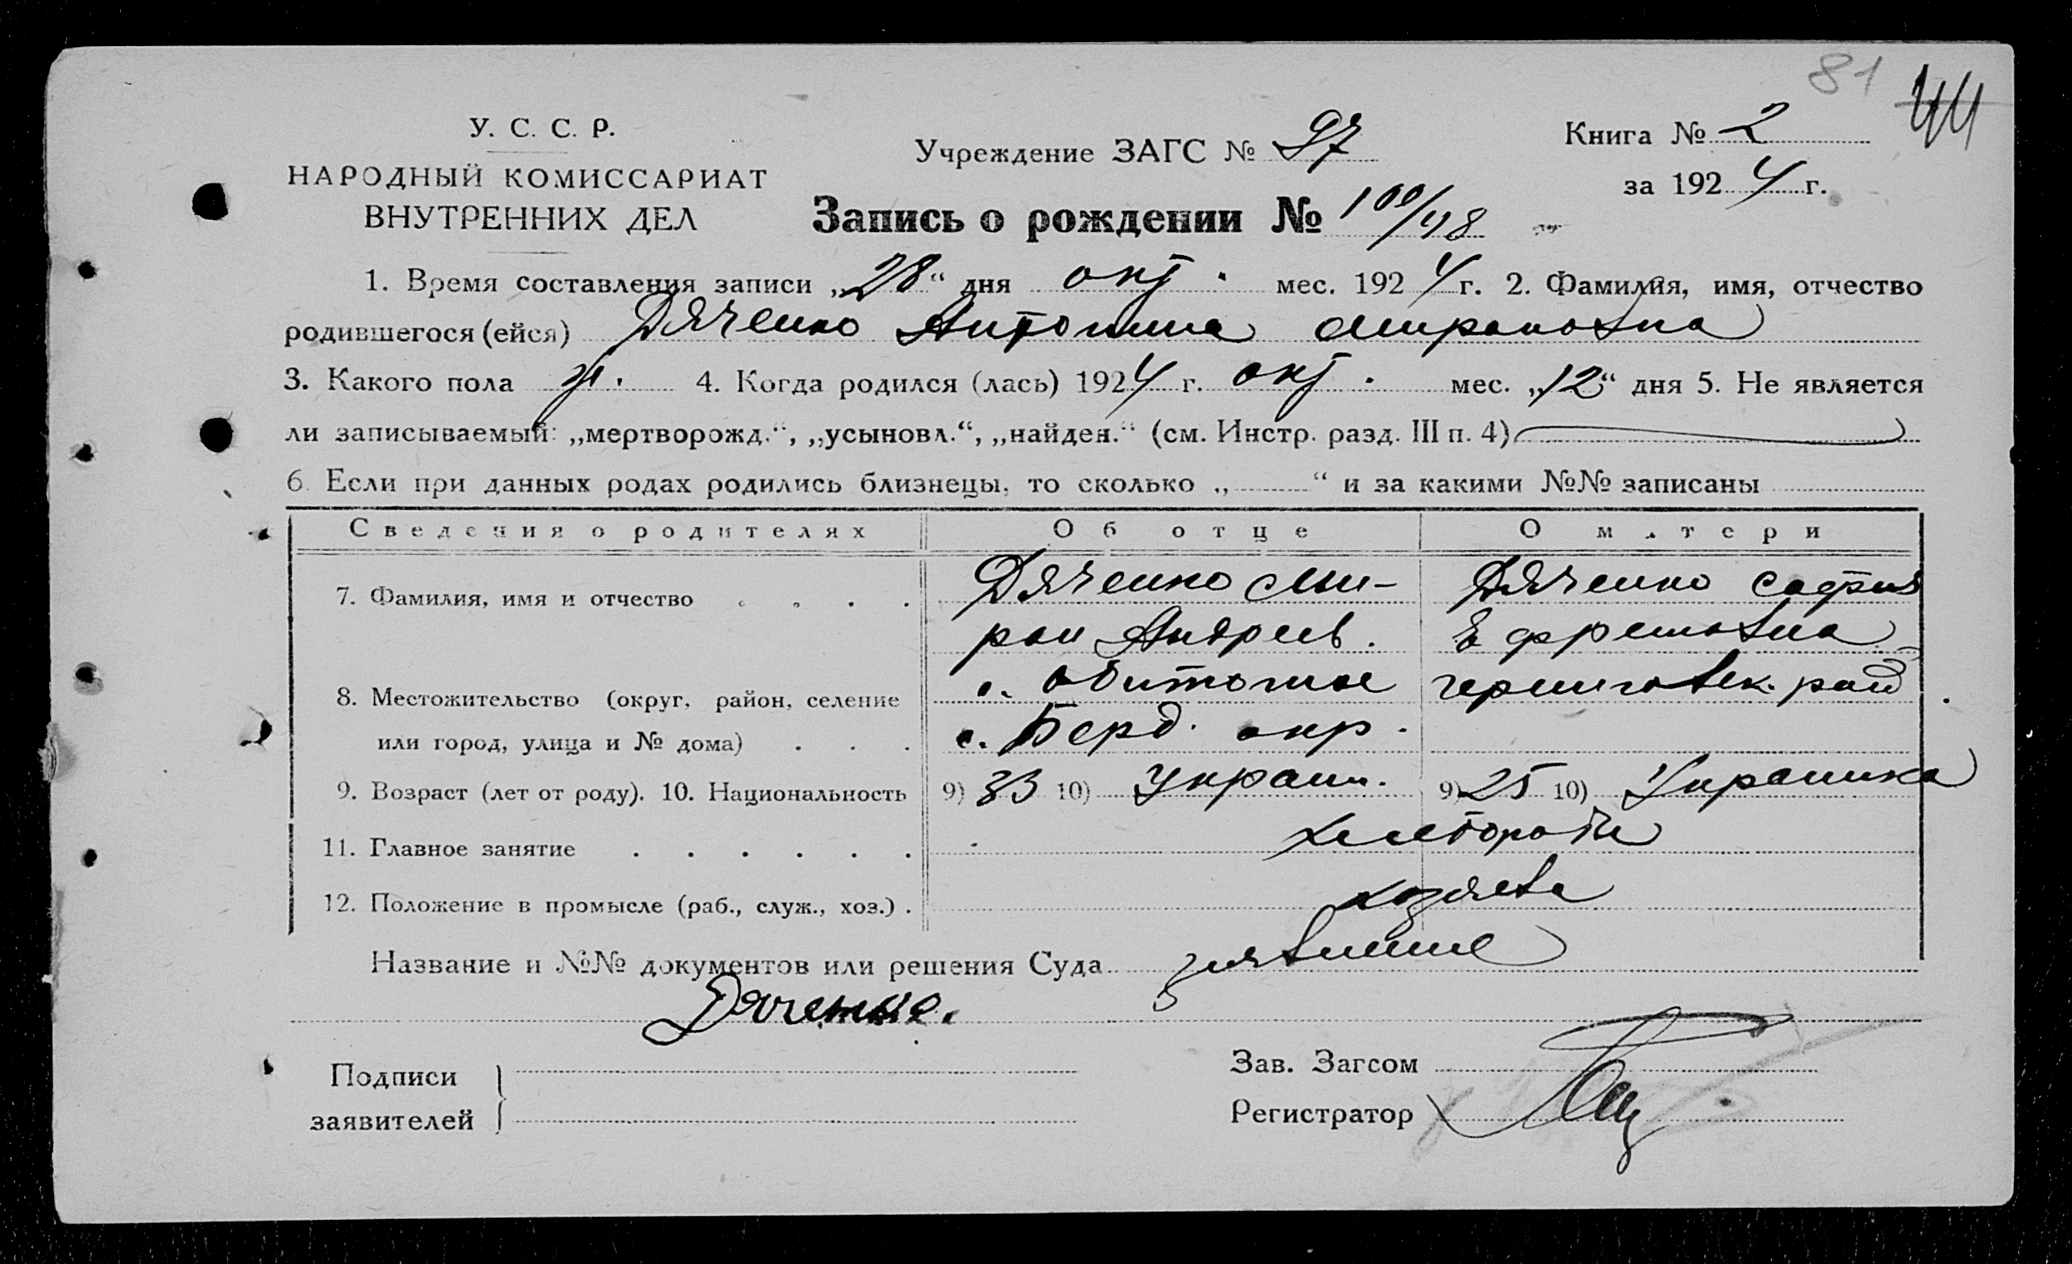 81 44
У. С. С. Р.
НАРОДНЫЙ КОМИССАРИАТ
ВНУТРЕННИХ ДЕЛ
Учреждение ЗАГС № 97
Книга № 2
за 1924 г.
Запись о рождении № 100/48
1. Время составления записи „28“ дня окт. мес. 1924 г. 2. Фамилия, имя, отчество
родившегося (ейся) Дяченко Антонина Мироновна
3. Какого пола ж. 4. Когда родился (лась) 1924 г. окт. мес. „12“ дня 5. Не является
ли записываемый: „мертворожд.“, „усыновл.“, „найден.“ (см. Инстр. разд. III п. 4)
6. Если при данных родах родились близнецы, то сколько „ “ и за какими №№ записаны
Сведения о родителях Об отце О матери
7. Фамилия, имя и отчество . . . . Дяченко Ми- Дяченко София
рон Андреев. Ефремовна
8. Местожительство (округ, район, селение с. Обиточное черниговск. рай
или город, улица и № дома) . . . Берд. окр.
9. Возраст (лет от роду). 10. Национальность 9) 33 10) Украин. 9) 25 10) Украинка
11. Главное занятие . . . . . . хлеборобы
12. Положение в промысле (раб., служ., хоз.) . хозяева
Название и №№ документов или решения Суда заявление
Дяченко.
Подписи
заявителей
Зав. Загсом
Регистратор